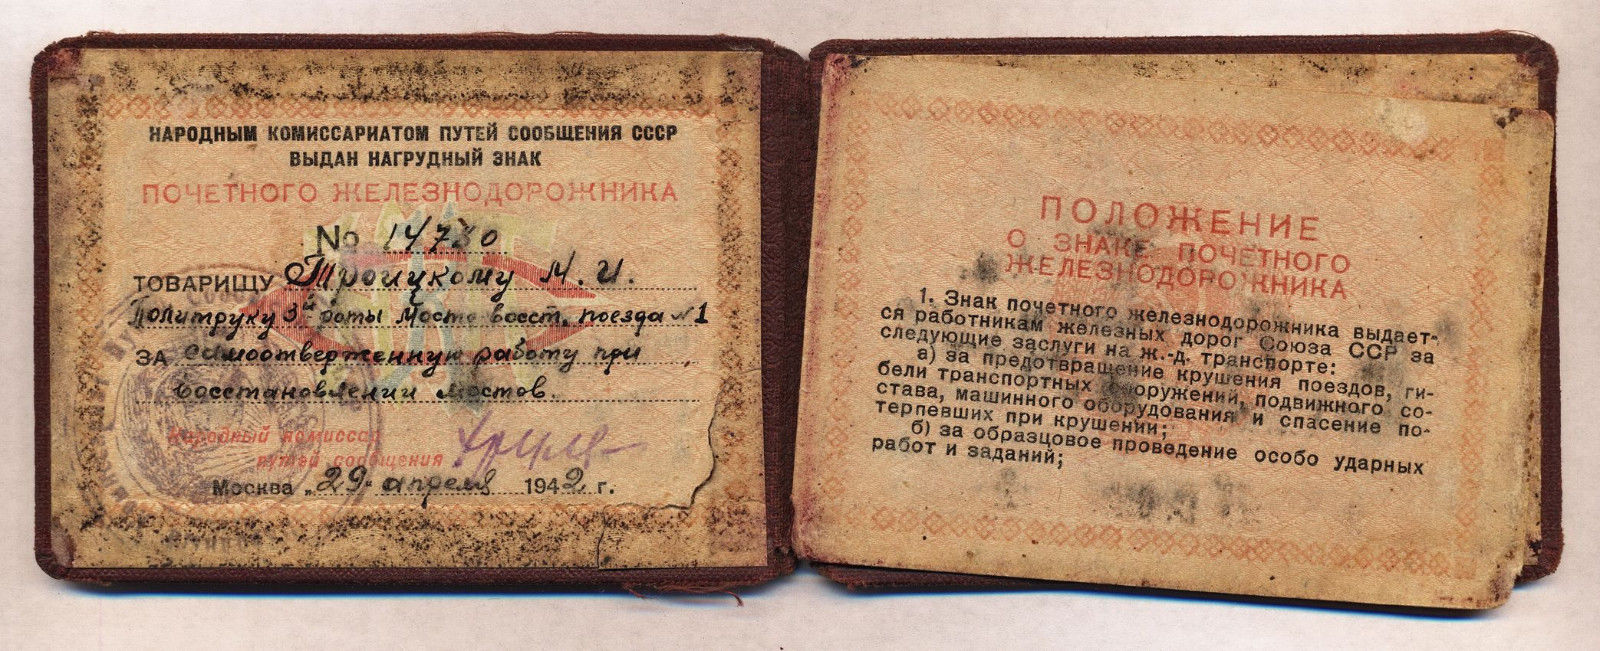 НАРОДНЫМ КОМИССАРИАТОМ ПУТЕЙ СООБЩЕНИЯ СССР
ВЫДАН НАГРУДНЫЙ ЗНАК
ПОЧЕТНОГО ЖЕЛЕЗНОДОРОЖНИКА
№ 14730
ТОВАРИЩУ Троицкому М. И.
Политруку 3й роты Мосто восст. поезда №1
ЗА самоотверженную работу при
восстановлении мостов.
Народный комиссар
путей сообщения
Москва „29" апреля 1942 г.
ПОЛОЖЕНИЕ
О ЗНАКЕ ПОЧЕТНОГО
ЖЕЛЕЗНОДОРОЖНИКА
1. Знак почетного железнодорожника выдает-
ся работникам железных дорог Союза ССР за
следующие заслуги на ж.-д. транспорте:
а) за предотвращение крушения поездов, ги-
бели транспортных сооружений, подвижного со-
става, машинного оборудования и спасение по-
терпевших при крушении;
б) за образцовое проведение особо ударных
работ и заданий;